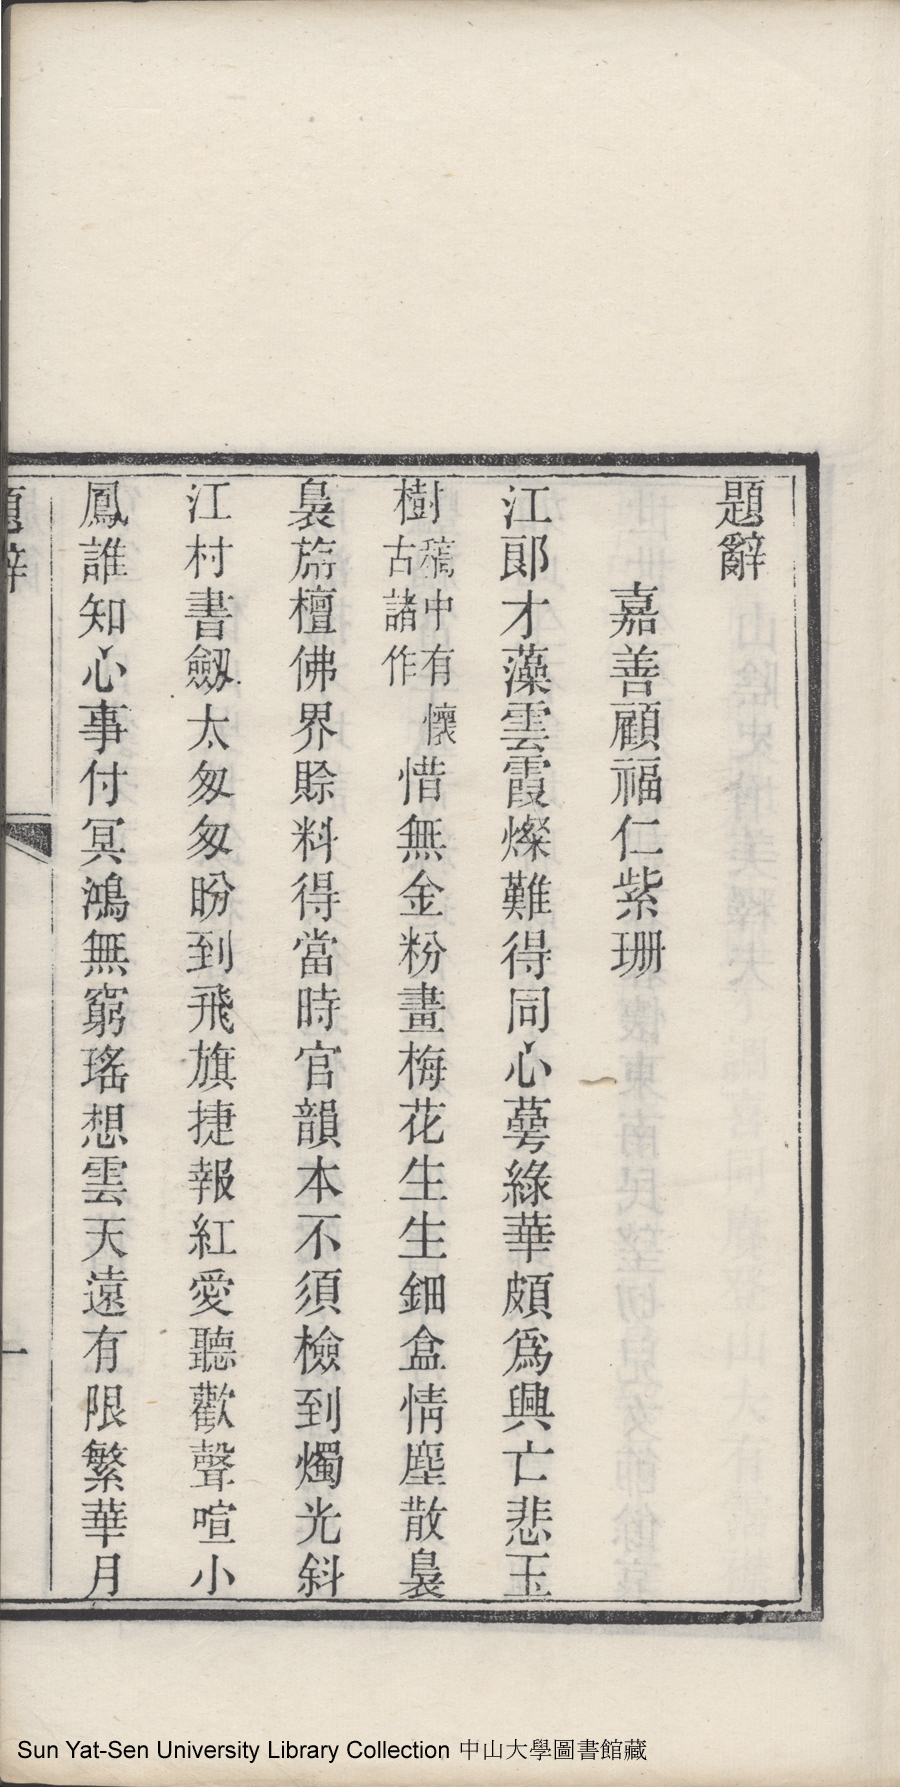 題辭
嘉善顧福仁紫珊
江郎才藻雲霞燦難得同心萼綠華頗爲興亡悲玉
樹稿中有懷古諸作惜無金粉畫梅花生生鈿盒情塵散裊
裊旃檀佛界賒料得當時官韻本不須檢到燭光斜
江村書劔太匆匆盼到飛旗捷報紅愛聽歡聲喧小
鳳誰知心事付冥鴻無窮瑤想雲天遠有限繁華月
Sun Yat-Sen University Library Collection 中山大學圖書館藏